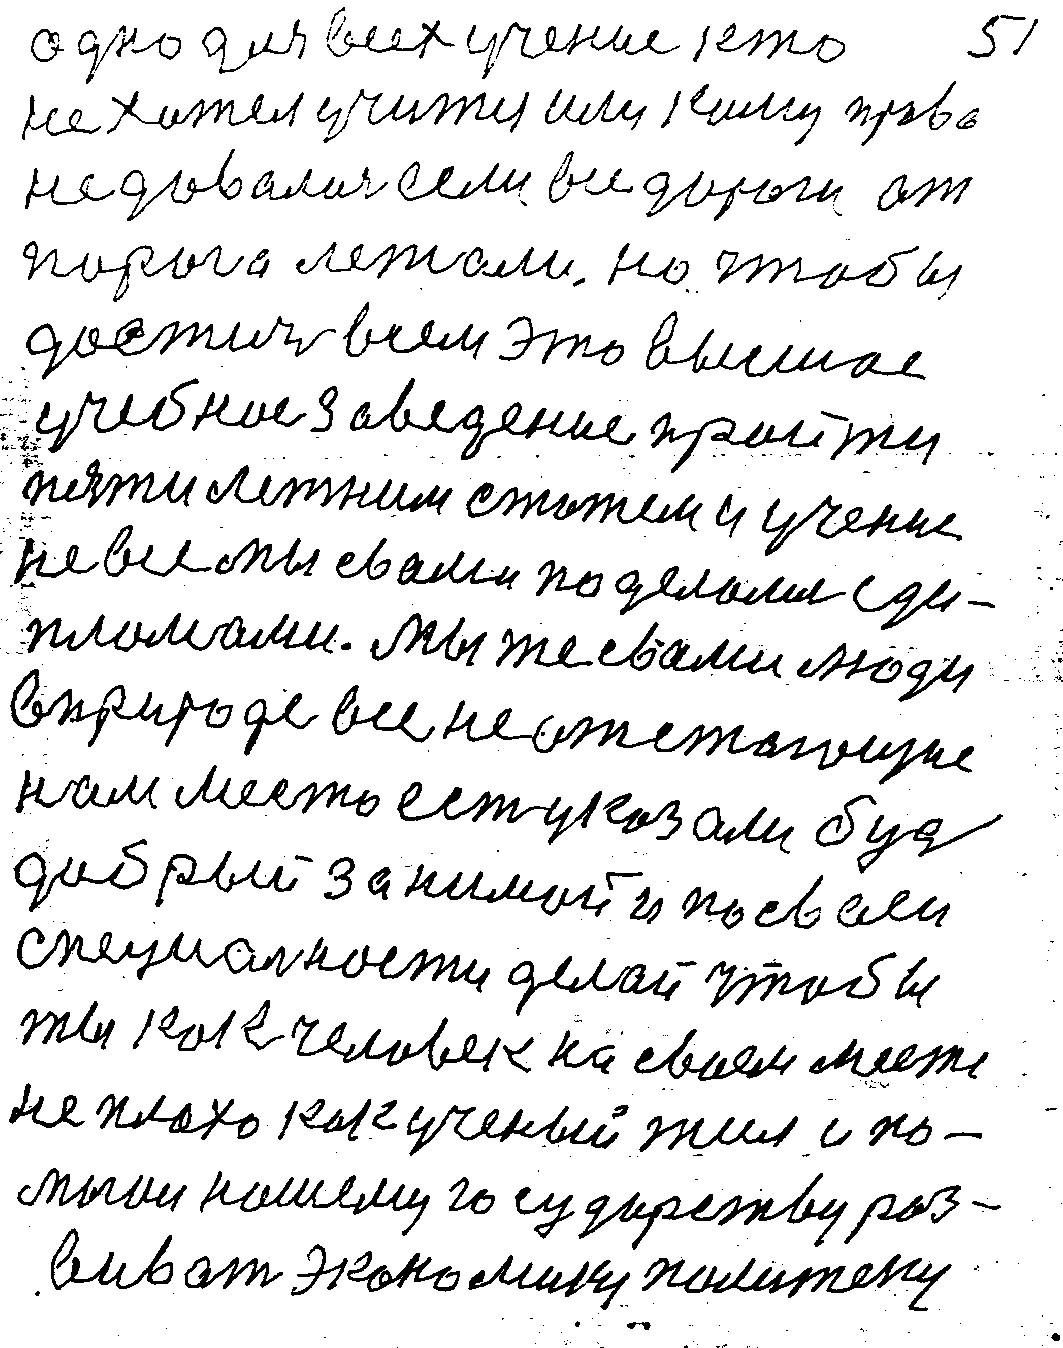 одно для всех учение кто 51
не хотел учится или кому права
не давались если все дороги от
порога лежали. но чтобы
достичь всем это высшое
учебное заведение пройти
пяти летним стажем и учение
не все мы свами поделали с ди-
пломами. Мы же свами люди
вприроде все не
нам место есть указали буд
добрый занимой и по своей
специалности делай чтобы
ты как человек на своем месте
не плохо как ученый жил и по-
могои нашему государству раз-
виват экономику политеку